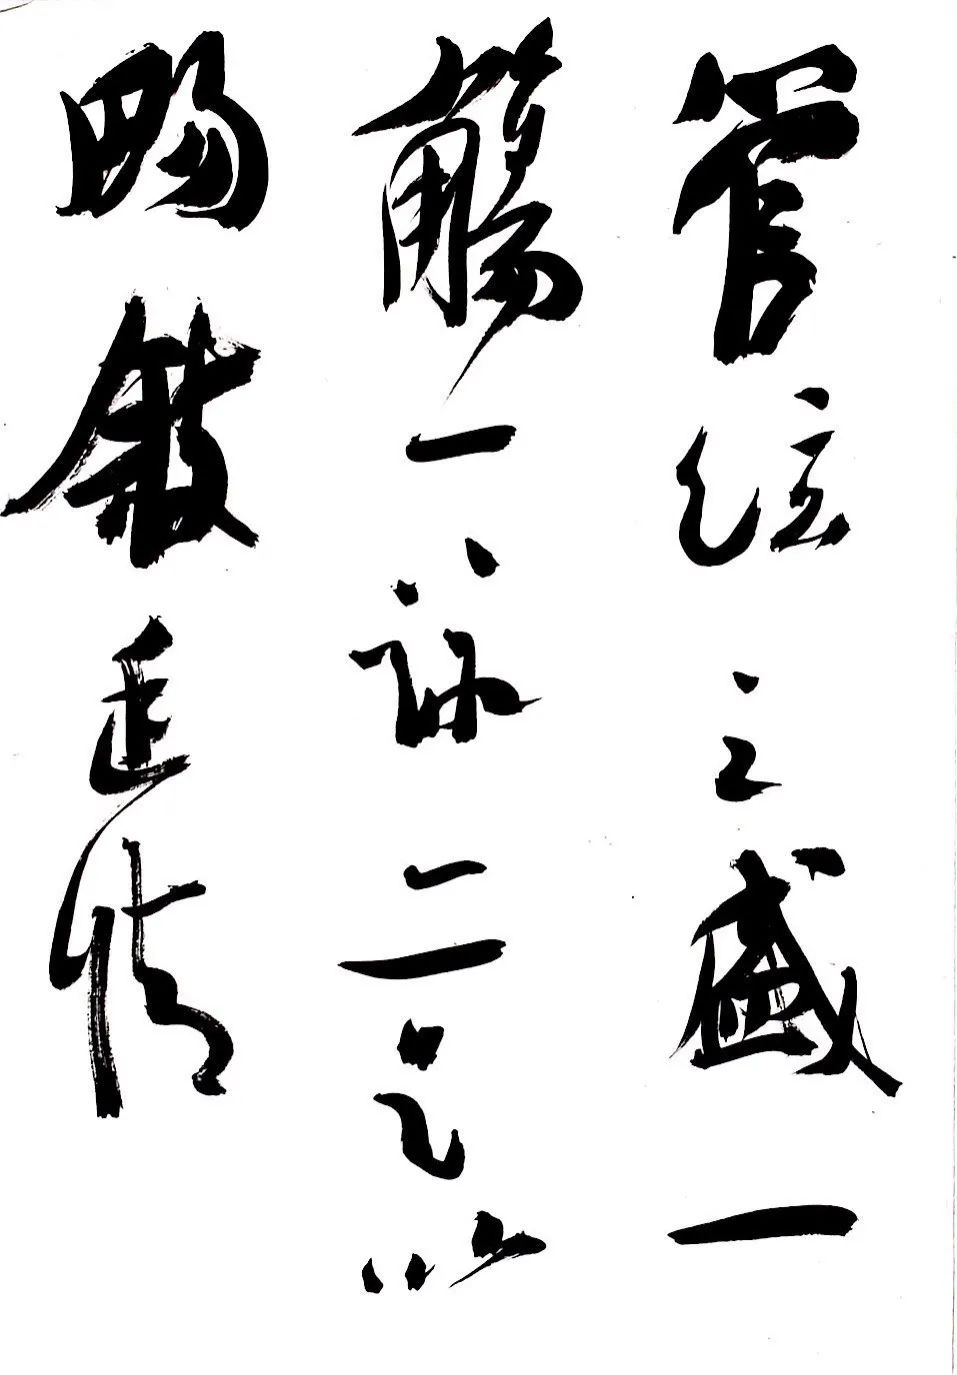 管弦之盛一
觴一詠亦足以
暢敘幽情